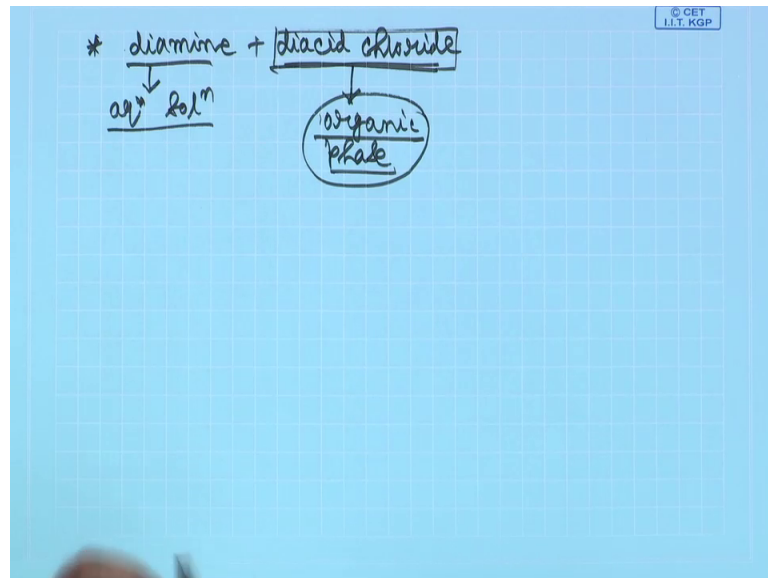 © CET
I.I.T. KGP
* diamine + diacid chloride
aqⁿ Solⁿ
organic
phase